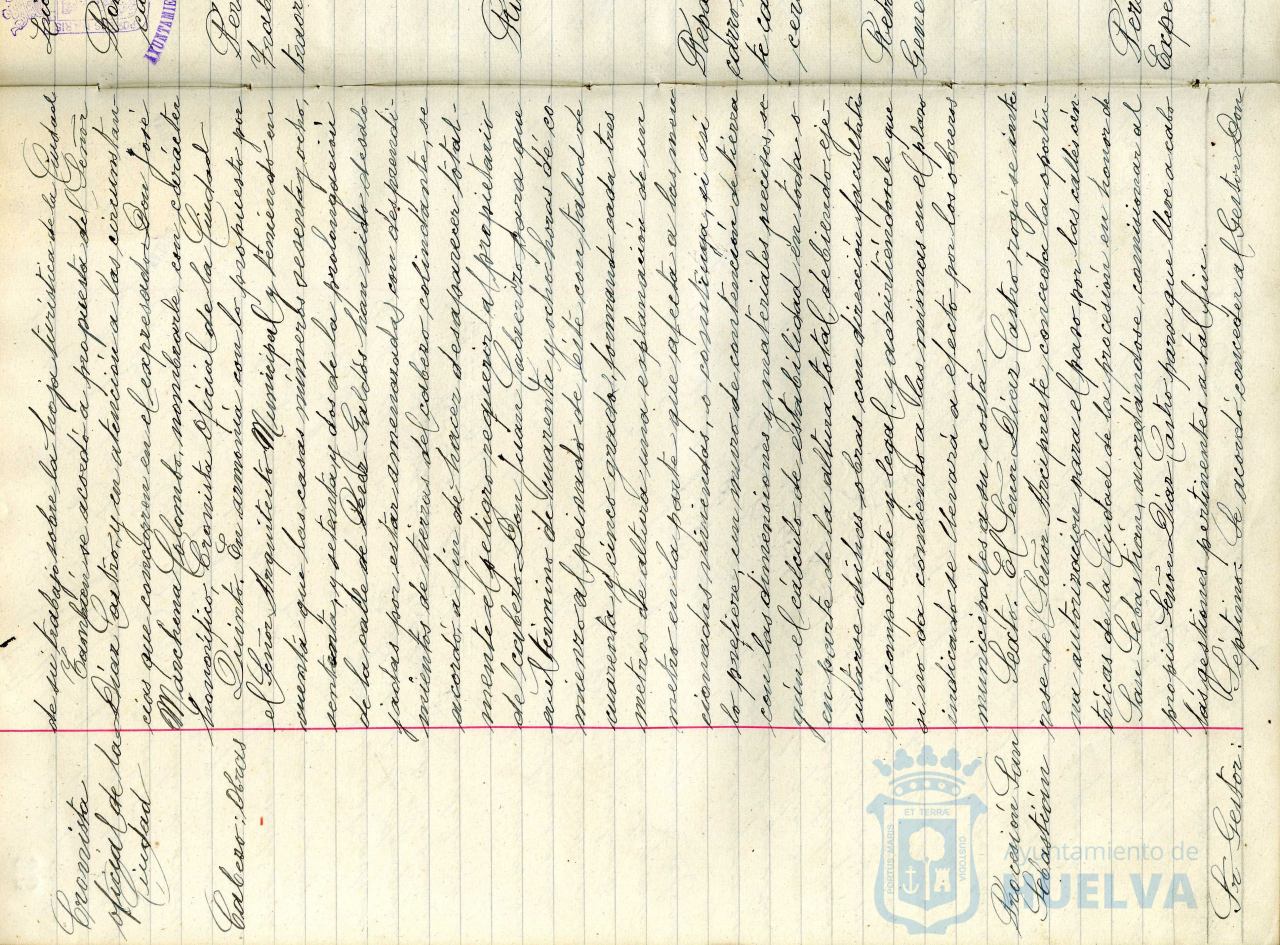 de su trabajo sobre la hoja turística de la Ciudad
Cronista
oficial de la
Ciudad
También se acordó a propuesta del Señor
Díaz Castro, y en atención a las circunstan-
cias que concurren en el expresado Don José
Marchena Colombo, nombrarle con carácter
honorífico Cronista Oficial de la Ciudad
Cabezo: Obras
Quinto. En armonía con lo propuesto por
el Señor Arquitecto Municipal y teniendo en
cuenta que las casas números sesenta y ocho,
setenta, y setenta y dos de la prolongación
de la calle de Pérez Galdós han sido desalo-
jadas por estar amenazadas con desprendi-
mientos de tierras del cabezo colindante, se
acordó a fin de hacer desaparecer total-
mente el peligro requerir al propietario
de cabezo Don Juan Cobacho para que
en el término de cuarenta y ocho horas dé co-
mienzo al peinado de éste con talud de
cuarenta y cinco grados, formando cada tres
metros de altura una explanación de un
metro en la parte que afecta a las men-
cionadas viviendas, o construya, si así
lo prefiere, un muro de contención de tierra
con las dimensiones y materiales precisos, se-
gún el cálculo de estabilidad, en toda o
en parte de la altura total, debiendo eje-
cutarse dichas obras con dirección facultati-
va competente y legal, y advirtiéndole que
si no da comienzo a las mismas en el plazo
indicado se llevará a efecto por los obreros
municipales a su costa.
Procesión San
Sebastián
Sexto. El Señor Díaz Castro rogó se inte-
rese del Señor Arcipreste conceda la oportu-
na autorización para el paso por las calles cén-
tricas de la Ciudad de la procesión en honor de
San Sebastián, acordándose comisionar al
propio Señor Díaz Castro para que lleve a cabo
las gestiones pertinentes a tal fin.
Sr. Gestor:
Séptimo. Se acordó conceder al Gestor Don
AYUNTAMIE
Repa
carro,
te ca
Gene
Expe
PORTUS MARIS
ET TERRÆ
CUSTODIA
Ayuntamiento de
HUELVA